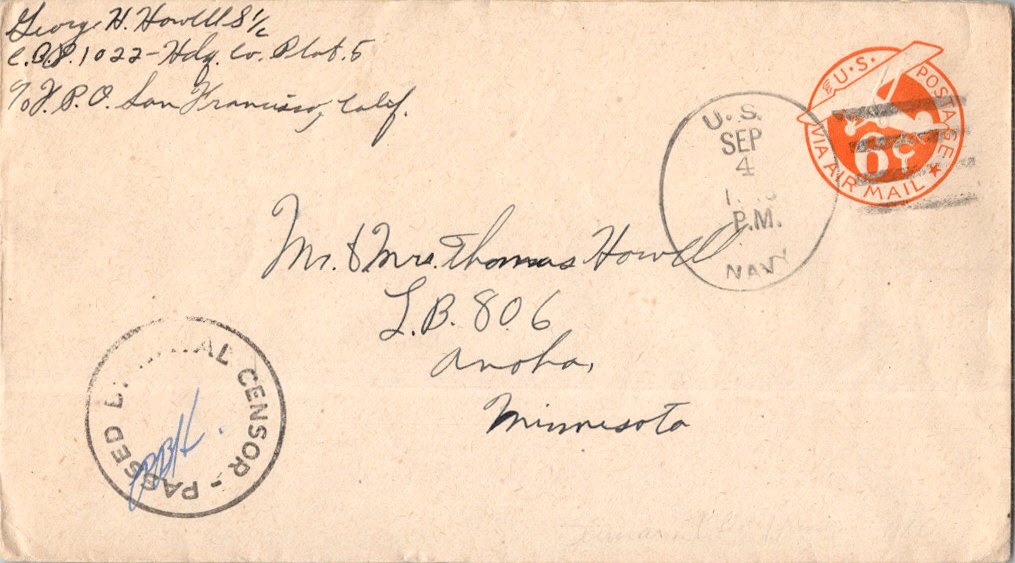 George H. Howell S 1/c
C.B. 1022 - Hdq. Co. Plat. 5
c/o F.P.O. San Francisco, Calif.
U.S. POSTAGE
VIA AIR MAIL
6¢
U.S.
SEP
4
P.M.
NAVY
Mr. & Mrs. Thomas Howell
L.B. 806
Anoka,
Minnesota
PASSED BY NAVAL CENSOR -